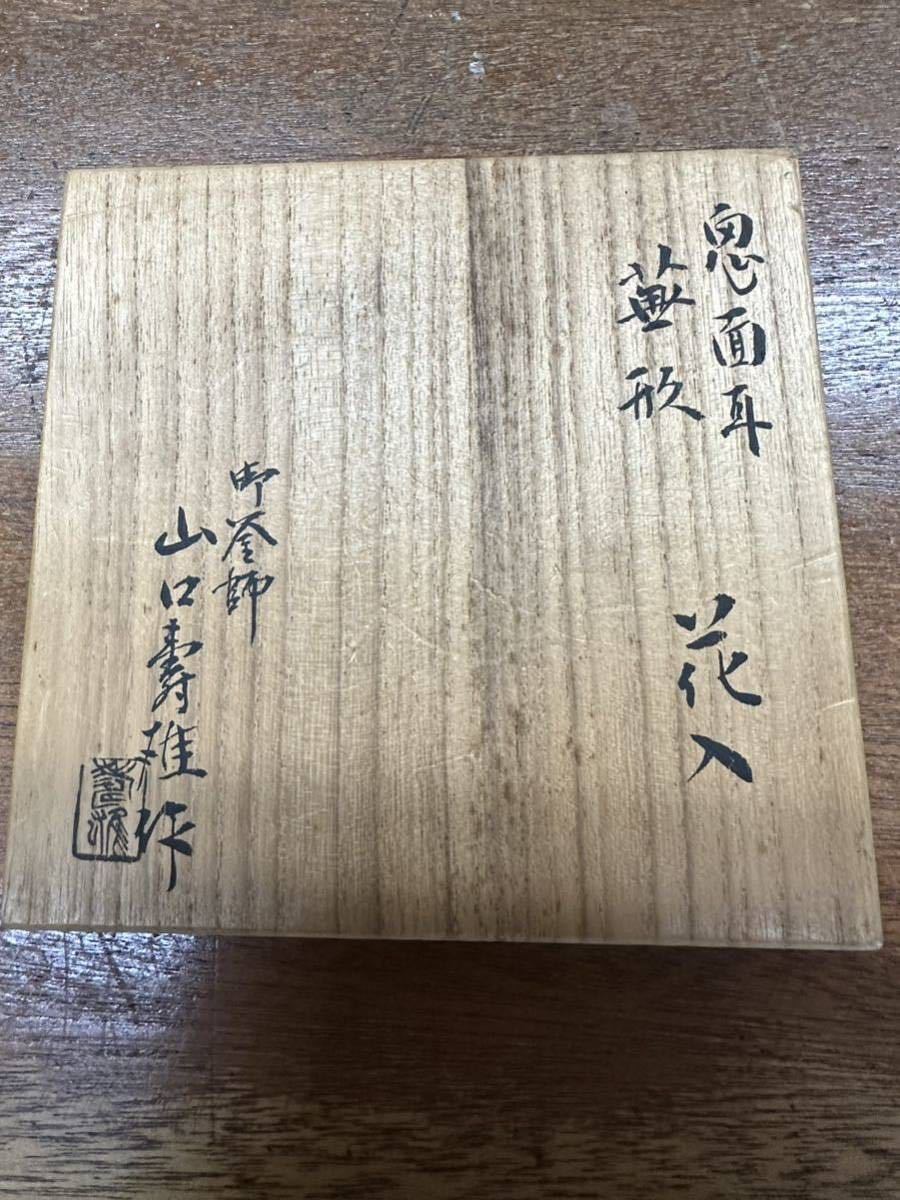 鬼面耳
蕪形
花入
御釜師
山口壽雄作